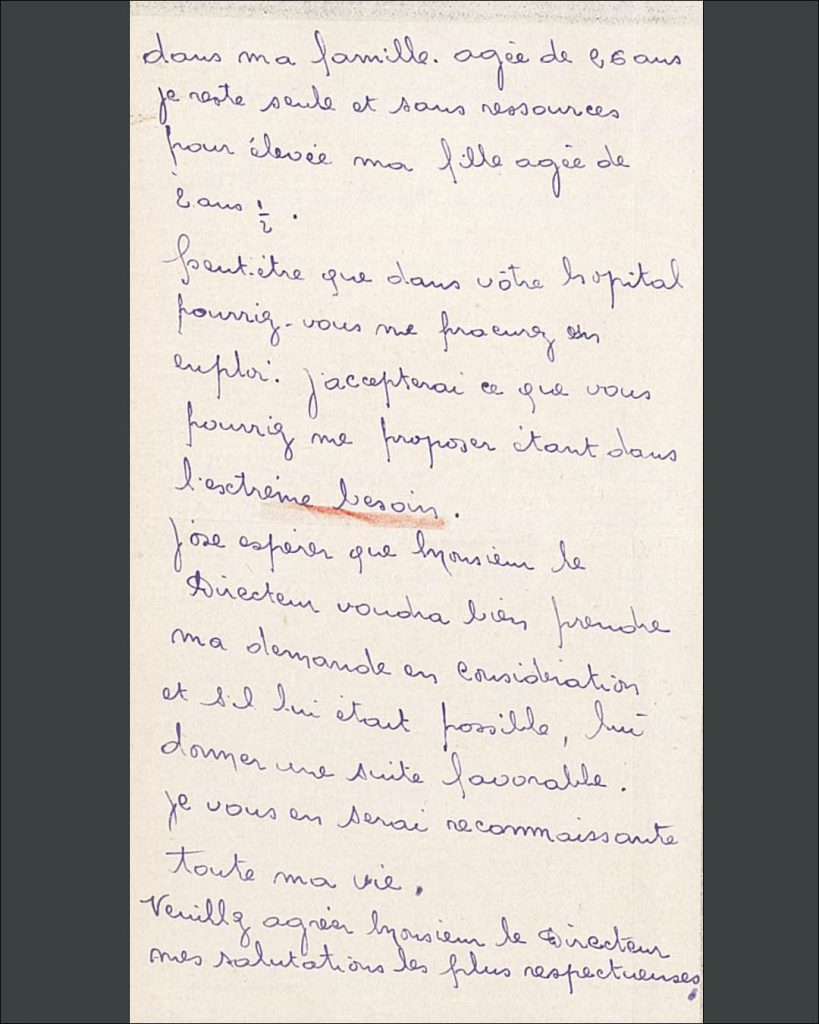 dans ma famille. agée de 26 ans
je reste seule et sans ressources
pour élevée ma fille agée de
2 ans 1/2.
Peut-être que dans vôtre hopital
pourriez-vous me procurez un
emploi. j'accepterai ce que vous
pourriez me proposer étant dans
l'extrême besoin.
j'ose espérer que Monsieur le
Directeur voudra bien prendre
ma demande en considération
et s'il lui était possible, lui
donner une suite favorable.
je vous en serai reconnaissante
toute ma vie.
Veuillez agréer Monsieur le Directeur
mes salutations les plus respectueuses.